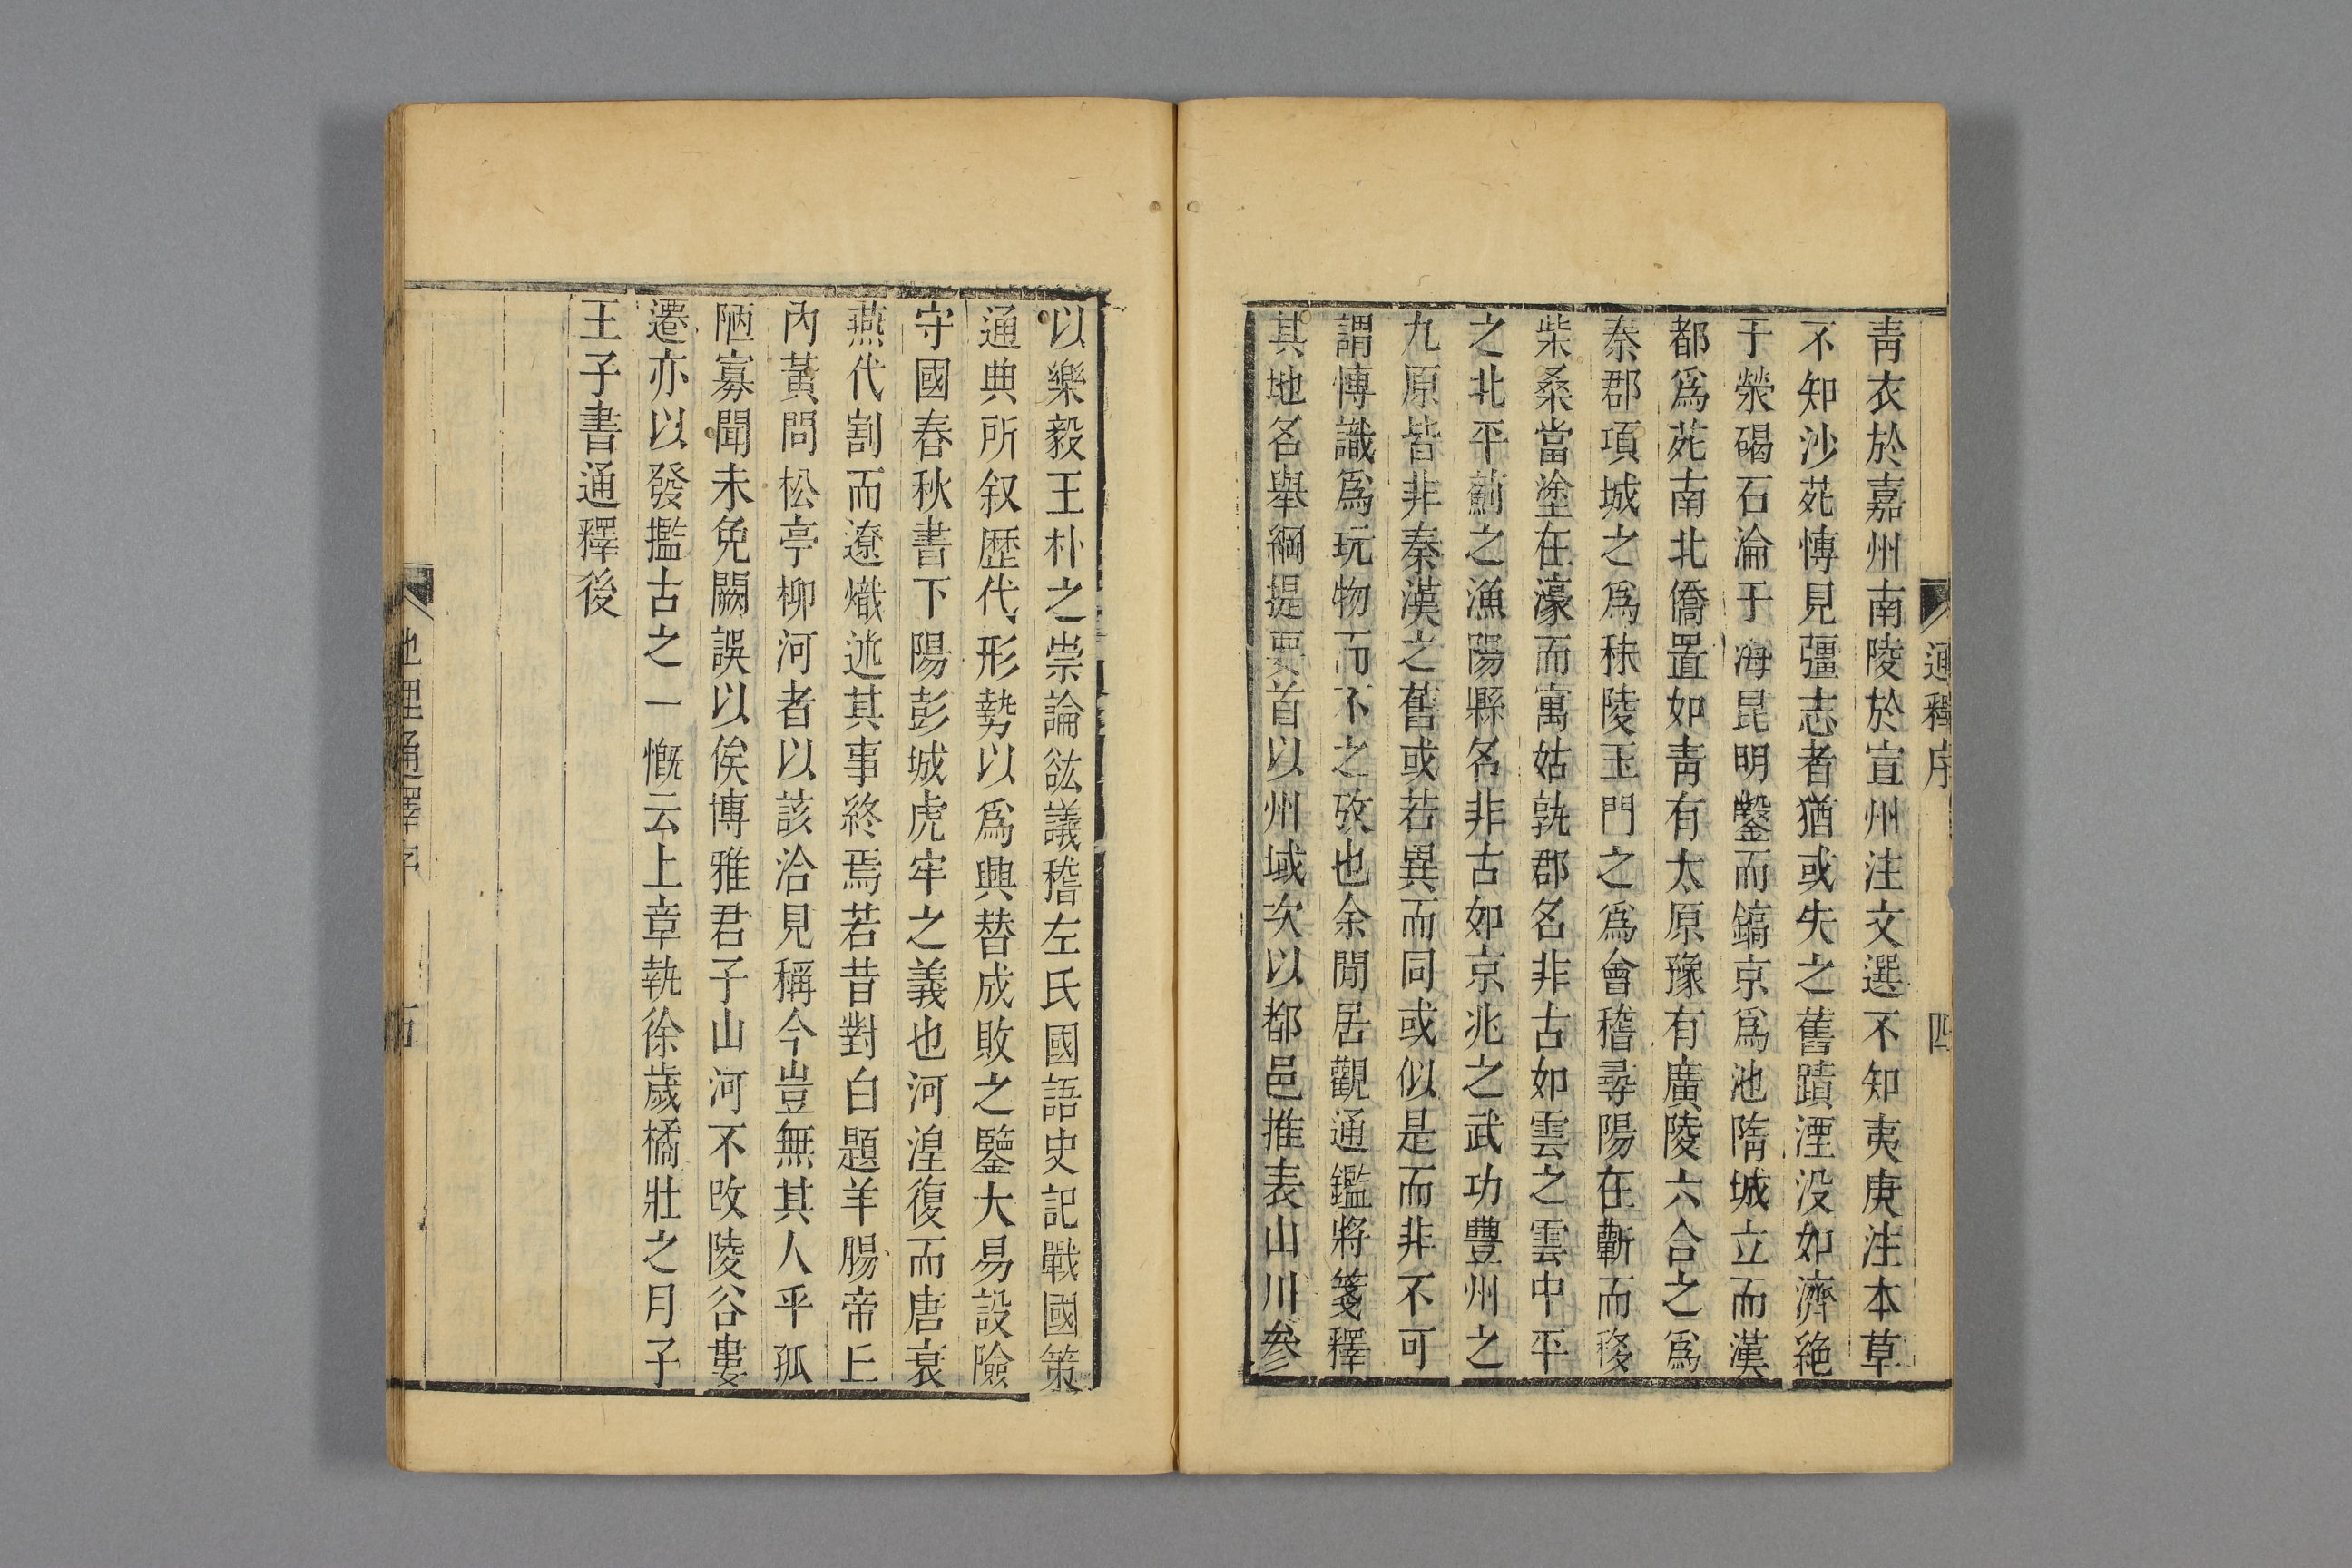 通釋序
四
青衣於嘉州南陵於宣州注文選不知夷庚注本草
不知沙苑愽見彊志者猶或失之舊蹟湮没如濟絶
于滎碣石淪于海昆明鑿而鎬京爲池隋城立而漢
都爲苑南北僑置如青有太原豫有廣陵六合之爲
秦郡項城之爲秣陵玉門之爲會稽尋陽在蘄而移
柴桑當塗在濠而寓姑孰郡名非古如雲之雲中平
之北平薊之漁陽縣名非古如京兆之武功豐州之
九原皆非秦漢之舊或若異而同或似是而非不可
謂愽識爲玩物而不之攷也余閒居觀通鑑將箋釋
其地名舉綱提要首以州域次以都邑推表山川參
以樂毅王朴之崇論谹議稽左氏國語史記戰國策
通典所叙歷代形勢以爲興替成敗之鑒大易設險
守國春秋書下陽彭城虎牢之義也河湟復而唐衰
燕代割而遼熾述其事終焉若昔對白題羊腸帝丘
內黃問松亭柳河者以該洽見稱今豈無其人乎孤
陋寡聞未免闕誤以俟博雅君子山河不改陵谷婁
遷亦以發攬古之一慨云上章執徐歲橘壯之月子
王子書通釋後
地理通釋序
五